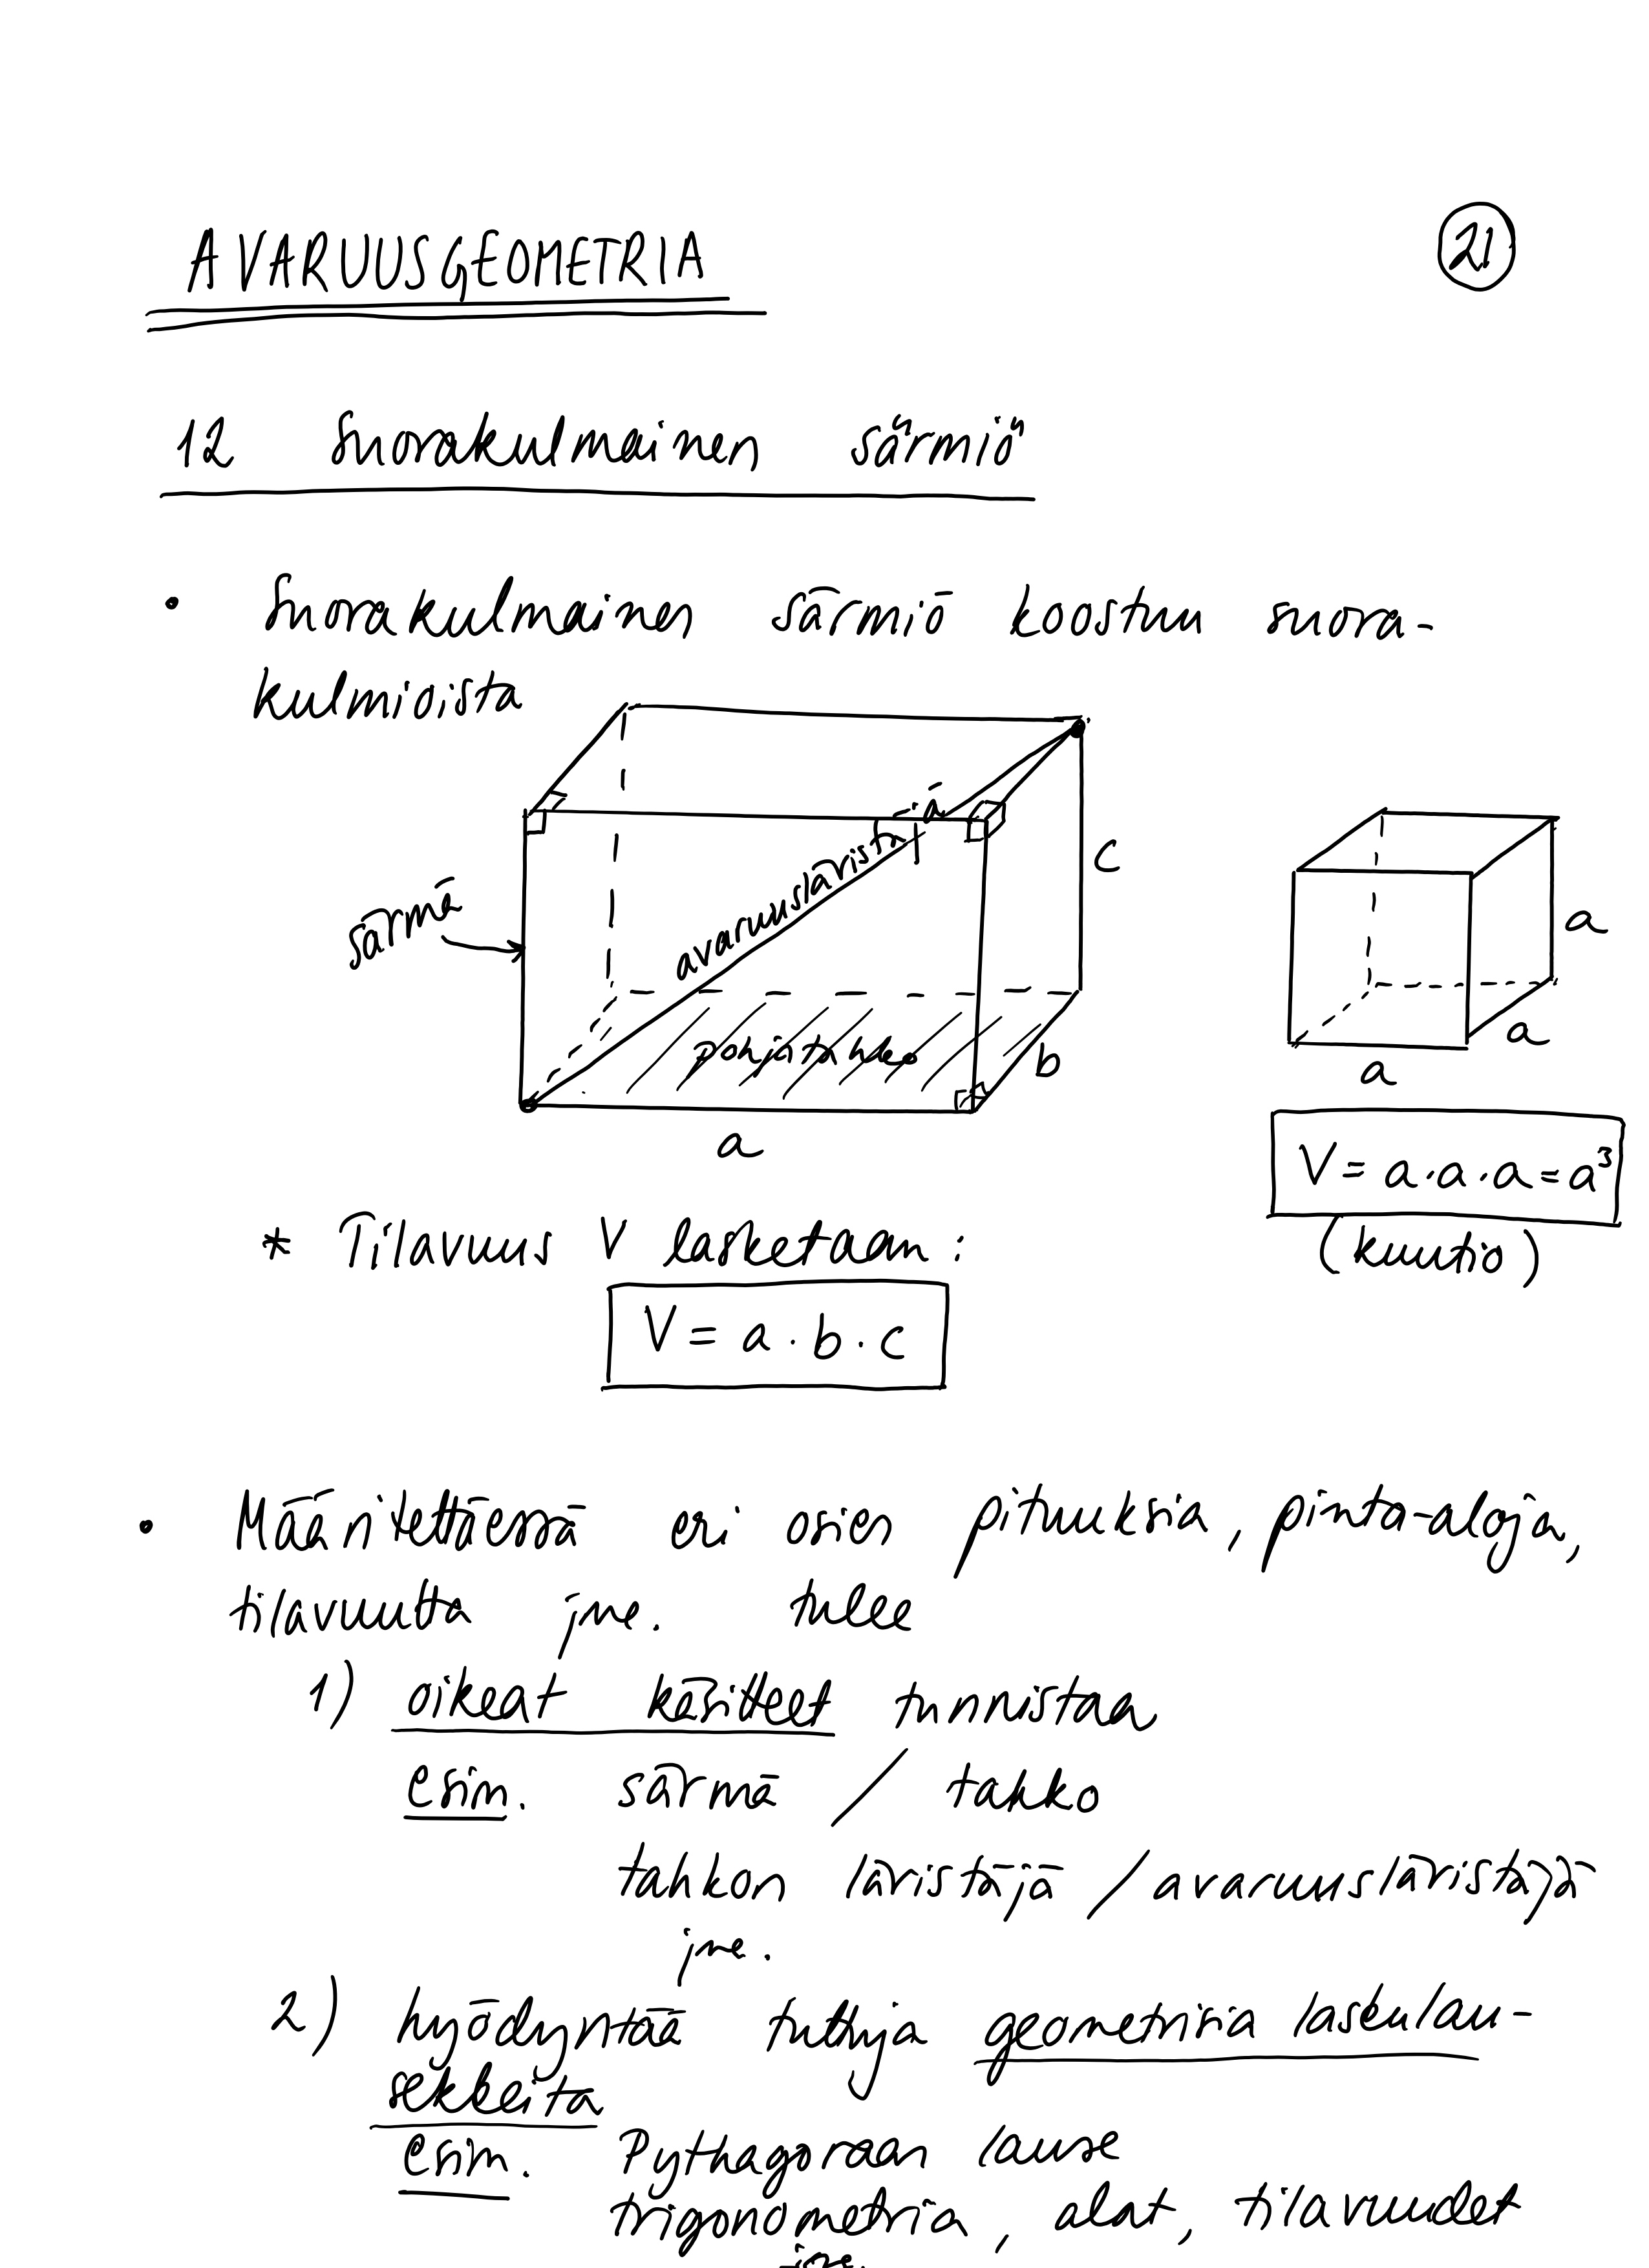 AVARUUSGEOMETRIA
21
12 Suorakulmainen särmiö
• Suorakulmainen särmiö koostuu suora-
kulmioista
särmä
avaruuslävistäjä
pohjatahko
c
b
a
a
a
a
V = a·a·a = a³
(kuutio)
* Tilavuus V lasketaan:
V = a · b · c
• Määritettäessä eri osien pituuksia, pinta-aloja,
tilavuutta jne. tulee
1) oikeat käsitteet tunnistaa
esim. särmä / tahko
tahkon lävistäjä / avaruuslävistäjä
jne.
2) hyödyntää tuttuja geometrisia laskulau-
sekkeita
esim. Pythagoraan lause
trigonometria, alat, tilavuudet
jne.